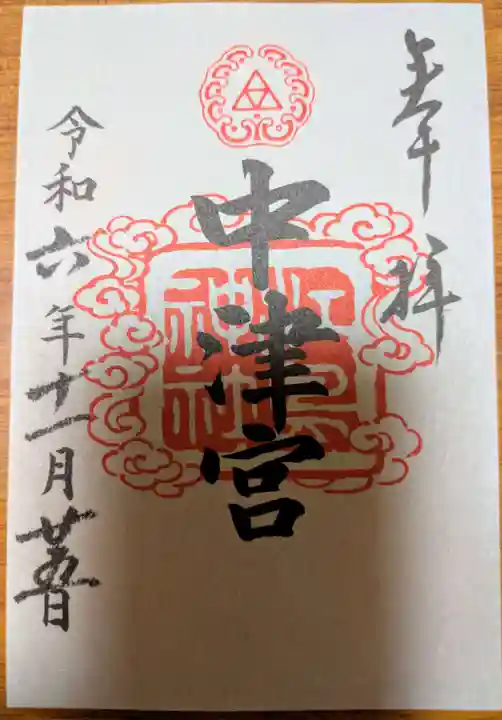 奉拝
中津宮
令和六年十一月廿五日